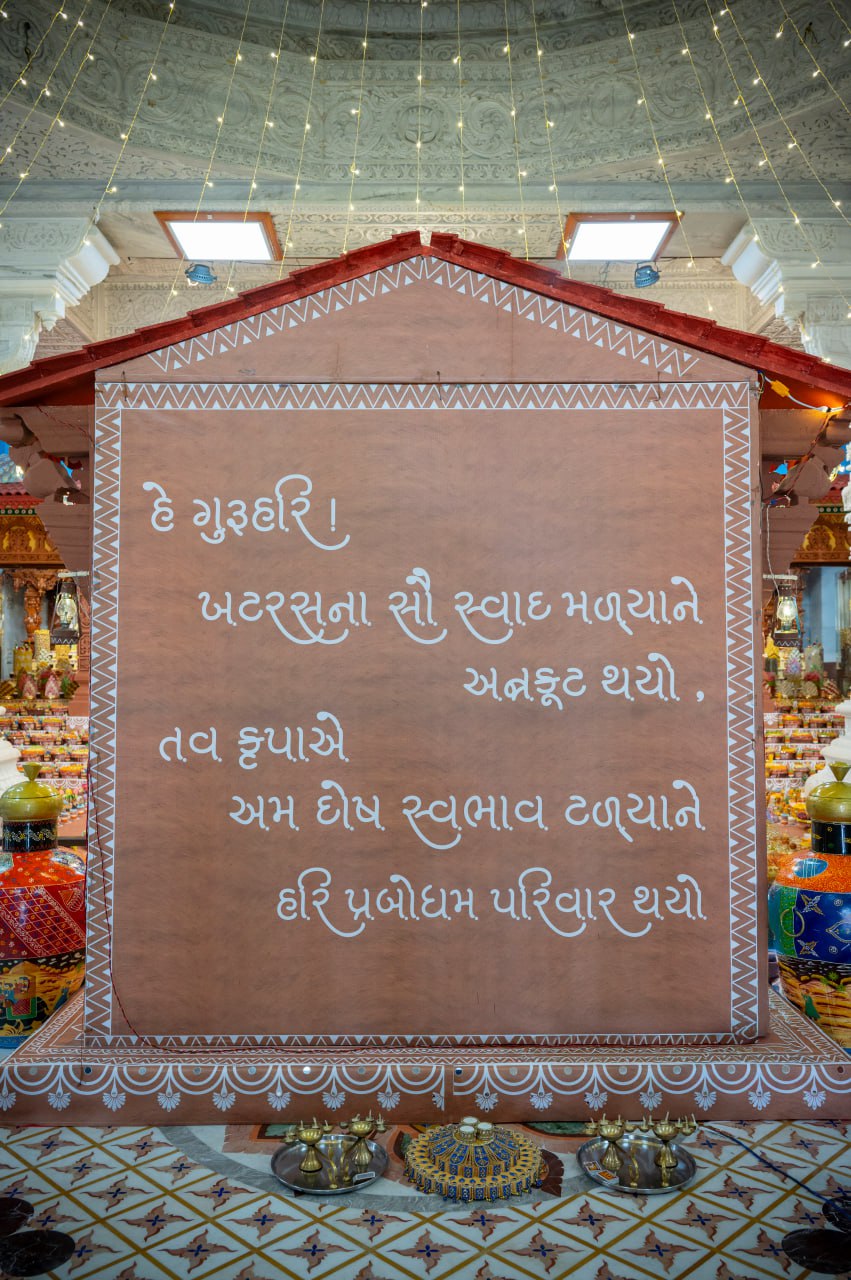 હે ગુરૂહરિ !
ખટરસના સૌ સ્વાદ મળ્યાને
અન્નકૂટ થયો ,
તવ કૃપાએ
અમ દોષ સ્વભાવ ટળ્યાને
હરિ પ્રબોધમ પરિવાર થયો